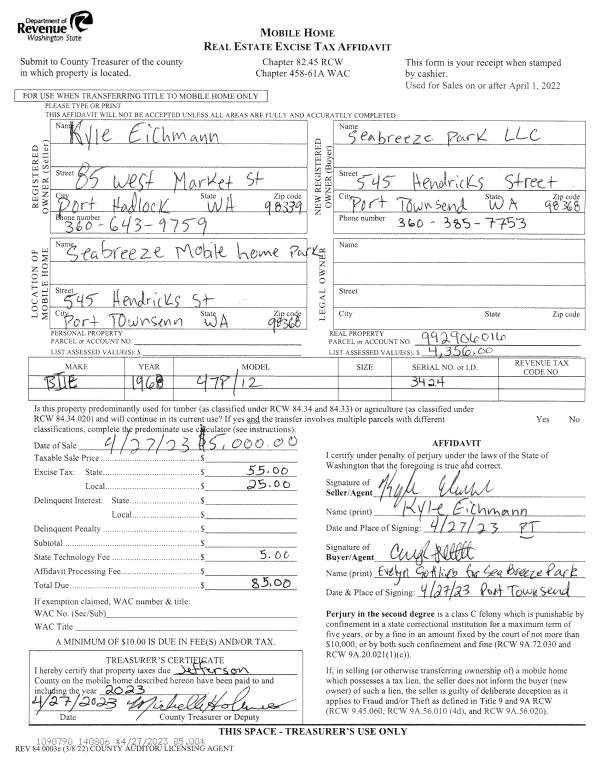 Department of
Revenue
Washington State
MOBILE HOME
REAL ESTATE EXCISE TAX AFFIDAVIT
Submit to County Treasurer of the county
in which property is located.
Chapter 82.45 RCW
Chapter 458-61A WAC
This form is your receipt when stamped
by cashier.
Used for Sales on or after April 1, 2022
FOR USE WHEN TRANSFERRING TITLE TO MOBILE HOME ONLY
PLEASE TYPE OR PRINT
THIS AFFIDAVIT WILL NOT BE ACCEPTED UNLESS ALL AREAS ARE FULLY AND ACCURATELY COMPLETED.
REGISTERED OWNER (Seller)
Name Kyle Eichmann
Street 85 West Market St
City Port Hadlock State WA Zip code 98339
Phone number 360-643-9759
NEW REGISTERED OWNER (Buyer)
Name Seabreeze Park LLC
Street 545 Hendricks Street
City Port Townsend State WA Zip code 98368
Phone number 360-385-7753
LOCATION OF MOBILE HOME
Name Seabreeze Mobile home Park
Street 545 Hendricks St
City Port Townsenn State WA Zip code 98368
LEGAL OWNER
Name
Street
City State Zip code
PERSONAL PROPERTY
PARCEL or ACCOUNT NO.
LIST ASSESSED VALUE(S): $
REAL PROPERTY
PARCEL or ACCOUNT NO. 992906016
LIST ASSESSED VALUE(S): $ 4,356.00
MAKE YEAR MODEL SIZE SERIAL NO. or I.D. REVENUE TAX CODE NO.
1968 47P/12 3424
Is this property predominantly used for timber (as classified under RCW 84.34 and 84.33) or agriculture (as classified under
RCW 84.34.020) and will continue in its current use? If yes and the transfer involves multiple parcels with different
classifications, complete the predominate use calculator (see instructions). Yes No
Date of Sale 4/27/23 $5,000.00
Taxable Sale Price $
Excise Tax: State $ 55.00
Local $ 25.00
Delinquent Interest: State $
Local $
Delinquent Penalty $
Subtotal $
State Technology Fee $ 5.00
Affidavit Processing Fee $
Total Due $ 85.00
If exemption claimed, WAC number & title:
WAC No. (Sec/Sub)
WAC Title
A MINIMUM OF $10.00 IS DUE IN FEE(S) AND/OR TAX.
TREASURER'S CERTIFICATE
I hereby certify that property taxes due Jefferson
County on the mobile home described hereon have been paid to and
including the year 2023
4/27/2023 Michelle Holmes
Date County Treasurer or Deputy
AFFIDAVIT
I certify under penalty of perjury under the laws of the State of
Washington that the foregoing is true and correct.
Signature of
Seller/Agent
Name (print) Kyle Eichmann
Date and Place of Signing: 4/27/23 PT
Signature of
Buyer/Agent
Name (print) Evelyn Gottlieb for Sea Breeze Park
Date & Place of Signing: 4/27/23 Port Townsend
Perjury in the second degree is a class C felony which is punishable by
confinement in a state correctional institution for a maximum term of
five years, or by a fine in an amount fixed by the court of not more than
$10,000, or by both such confinement and fine (RCW 9A.72.030 and
RCW 9A.20.021(1)(c)).
If, in selling (or otherwise transferring ownership of) a mobile home
which possesses a tax lien, the seller does not inform the buyer (new
owner) of such a lien, the seller is guilty of deliberate deception as it
applies to Fraud and/or Theft as defined in Title 9 and 9A RCW
(RCW 9.45.060, RCW 9A.56.010 (4d), and RCW 9A.56.020).
THIS SPACE - TREASURER'S USE ONLY
1090790 140806 $4/27/2023 85.00*
REV 84 0003e (3/8/22) COUNTY AUDITOR/ LICENSING AGENT